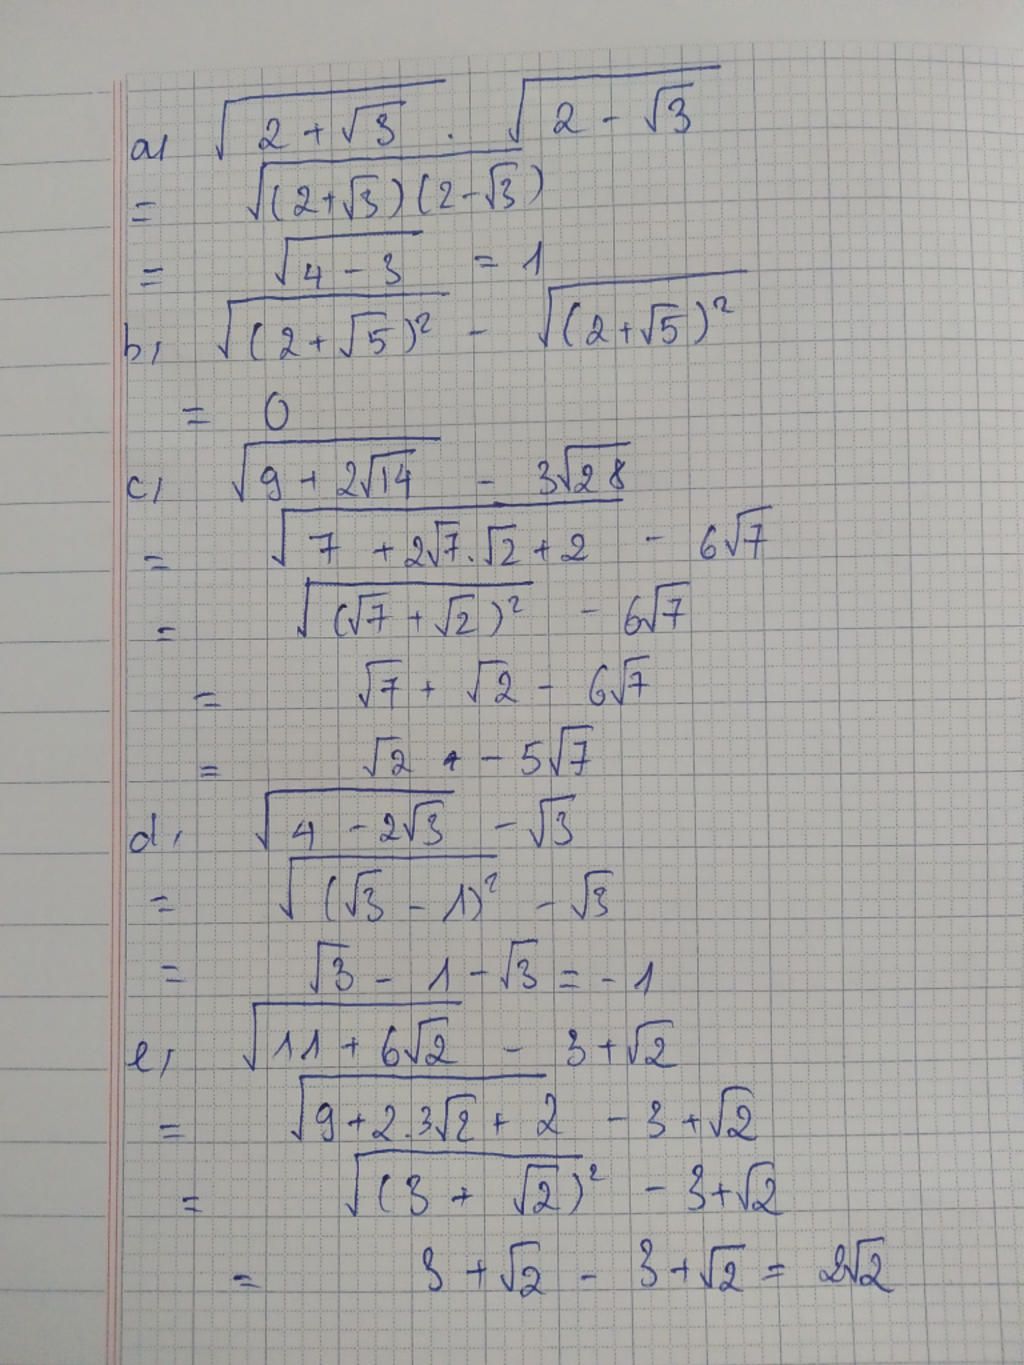 a, √(2 + √3) . √(2 - √3)
= √((2+√3)(2-√3))
= √(4 - 3) = 1
b, √((2+√5)²) - √((2+√5)²)
= 0
c, √(9 + 2√14) - 3√28
= √(7 + 2√7.√2 + 2) - 6√7
= √((√7 + √2)²) - 6√7
= √7 + √2 - 6√7
= √2 - 5√7
d, √(4 - 2√3) - √3
= √((√3 - 1)²) - √3
= √3 - 1 - √3 = -1
e, √(11 + 6√2) - 3 + √2
= √(9 + 2.3√2 + 2) - 3 + √2
= √((3 + √2)²) - 3 + √2
= 3 + √2 - 3 + √2 = 2√2